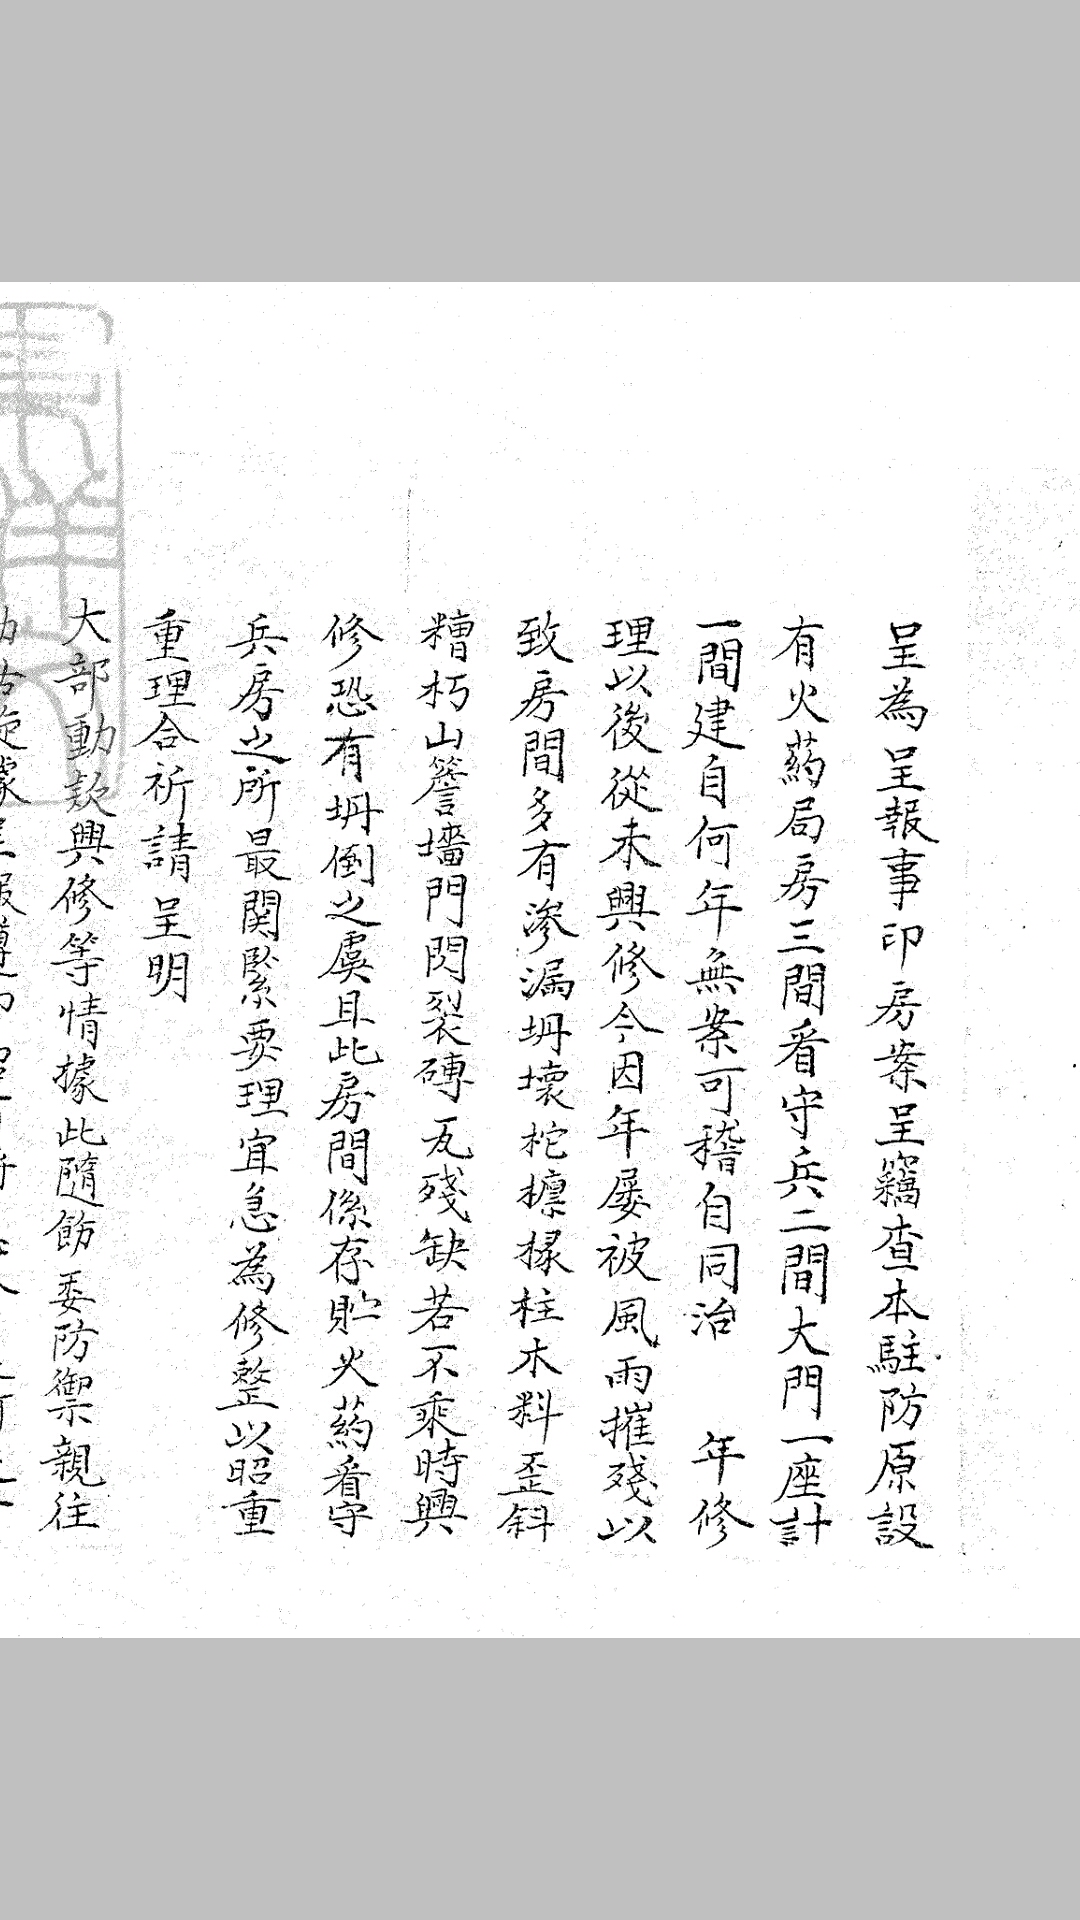 呈為呈報事印房案呈竊查本駐防原設
有火葯局房三間看守兵二間大門一座計
一間建自何年無案可稽自同治　年修
理以後從未興修今因年屡被風雨摧殘以
致房間多有滲漏坍壞柁檁椽柱木料歪斜
糟朽山簷墻門閃裂磚瓦殘缺若不乘時興
修恐有坍倒之虞且此房間係存貯火葯看守
兵房之所最関緊要理宜急為修整以昭重
重理合祈請呈明
大部動款興修等情據此隨飭委防禦親往